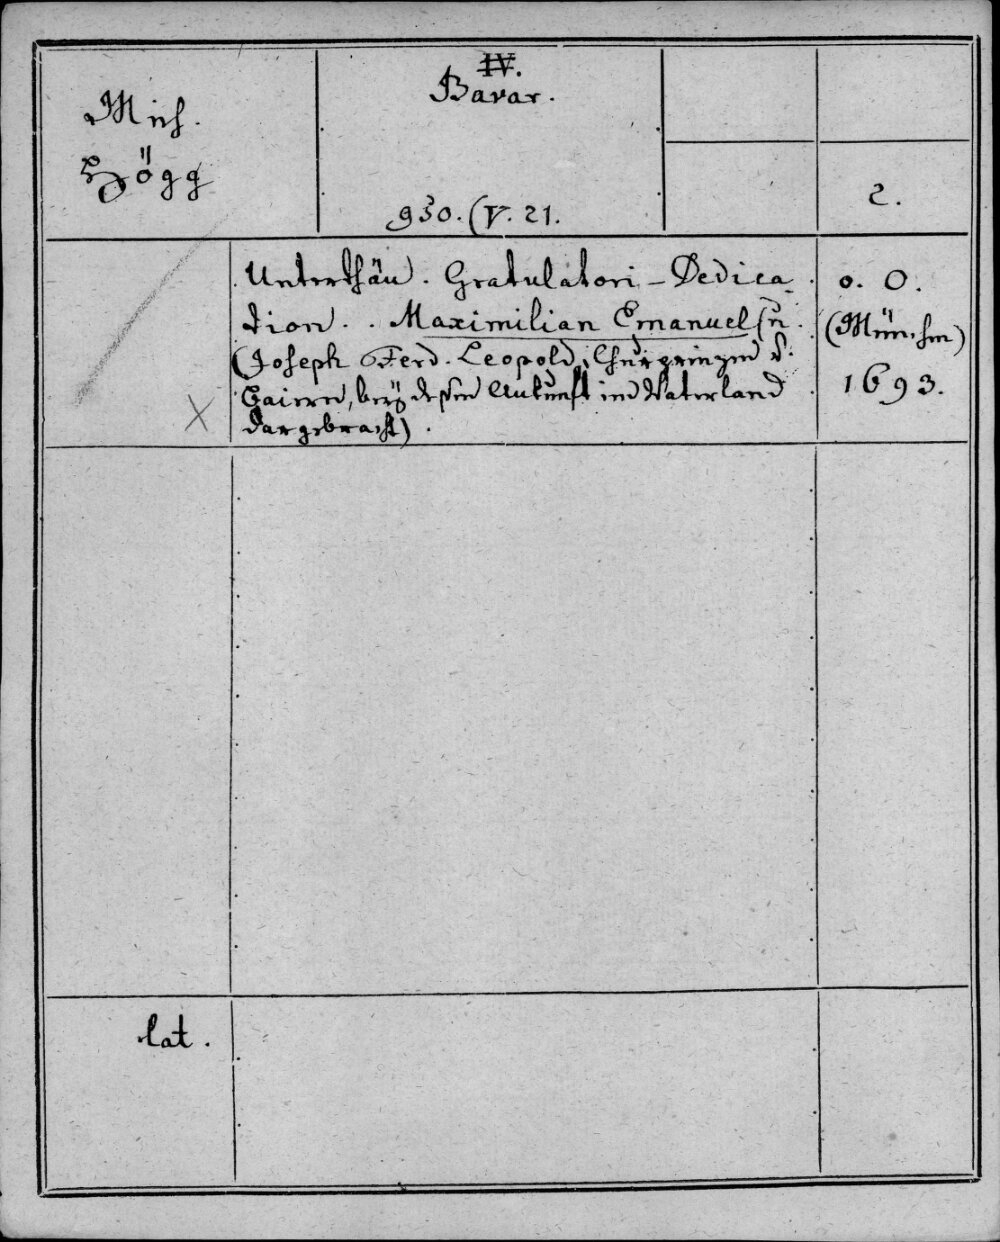 IV.
Bavar.
Mich.
Högg
930. (V. 21.
2.
Unterthän. Gratulatori-Dedica-
tion.. Maximilian Emanuel (u.
(Joseph Ferd. Leopold, Churprinzen v.
Baiern, bey dessen Ankunft ins Vaterland
dargebracht).
o. O.
(München)
1693.
X
lat.